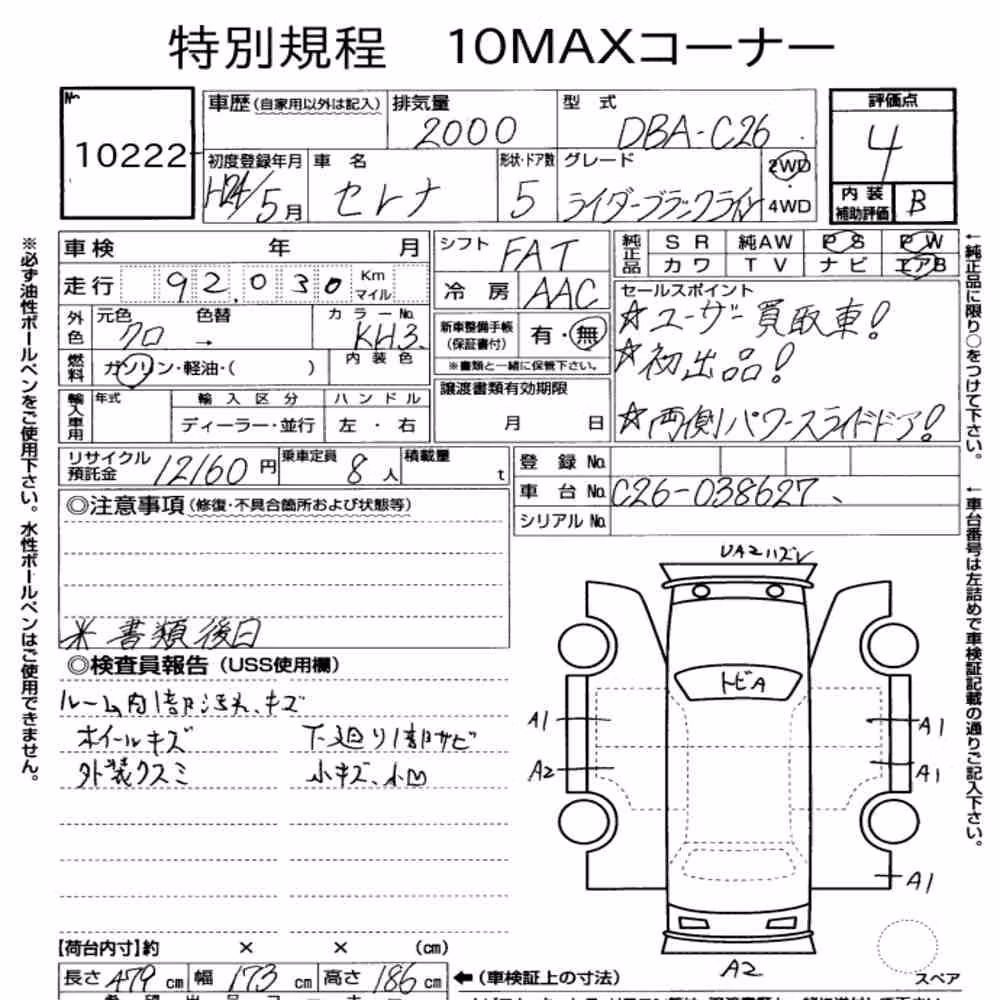 特別規程 10MAXコーナー
No.
10222
車歴(自家用以外は記入)
排気量
2000
型式
DBA-C26
評価点
4
初度登録年月
H24/5月
車名
セレナ
形状・ドア数
5
グレード
ライダーブラックライン
2WD
4WD
内装補助評価
B
車検 年 月
走行 92,030 Km マイル
シフト
FAT
冷房
AAC
純正品
SR 純AW PS PW
カワ TV ナビ エアB
外色
元色 色替 カラーNo.
クロ → KH3
内装色
燃料
ガソリン・軽油・( )
新車整備手帳(保証書付)
有・無
※書類と一緒に保管下さい。
セールスポイント
☆ユーザー買取車!
☆初出品!
☆両側パワースライドドア!
輸入車用
年式 輸入区分 ハンドル
ディーラー・並行 左・右
譲渡書類有効期限
月 日
リサイクル預託金 12160円
乗車定員 8人
積載量 t
登録No.
車台No. C26-038627
シリアルNo.
◎注意事項(修復・不具合箇所および状態等)
※書類後日
◎検査員報告(USS使用欄)
ルーム内1部汚れ、キズ
ホイールキズ 下廻り1部サビ
外装クスミ 小キズ、小凹
UA2ハズレ
トビA
A1 A1
A2 A1
A1
A2
スペア
【荷台内寸】約 × × (cm)
長さ 479cm 幅 173cm 高さ 186cm ←(車検証上の寸法)
※必ず油性ボールペンをご使用下さい。水性ボールペンはご使用できません。
←純正品に限り○をつけて下さい。
←車台番号は左詰めで車検証記載の通りご記入下さい。